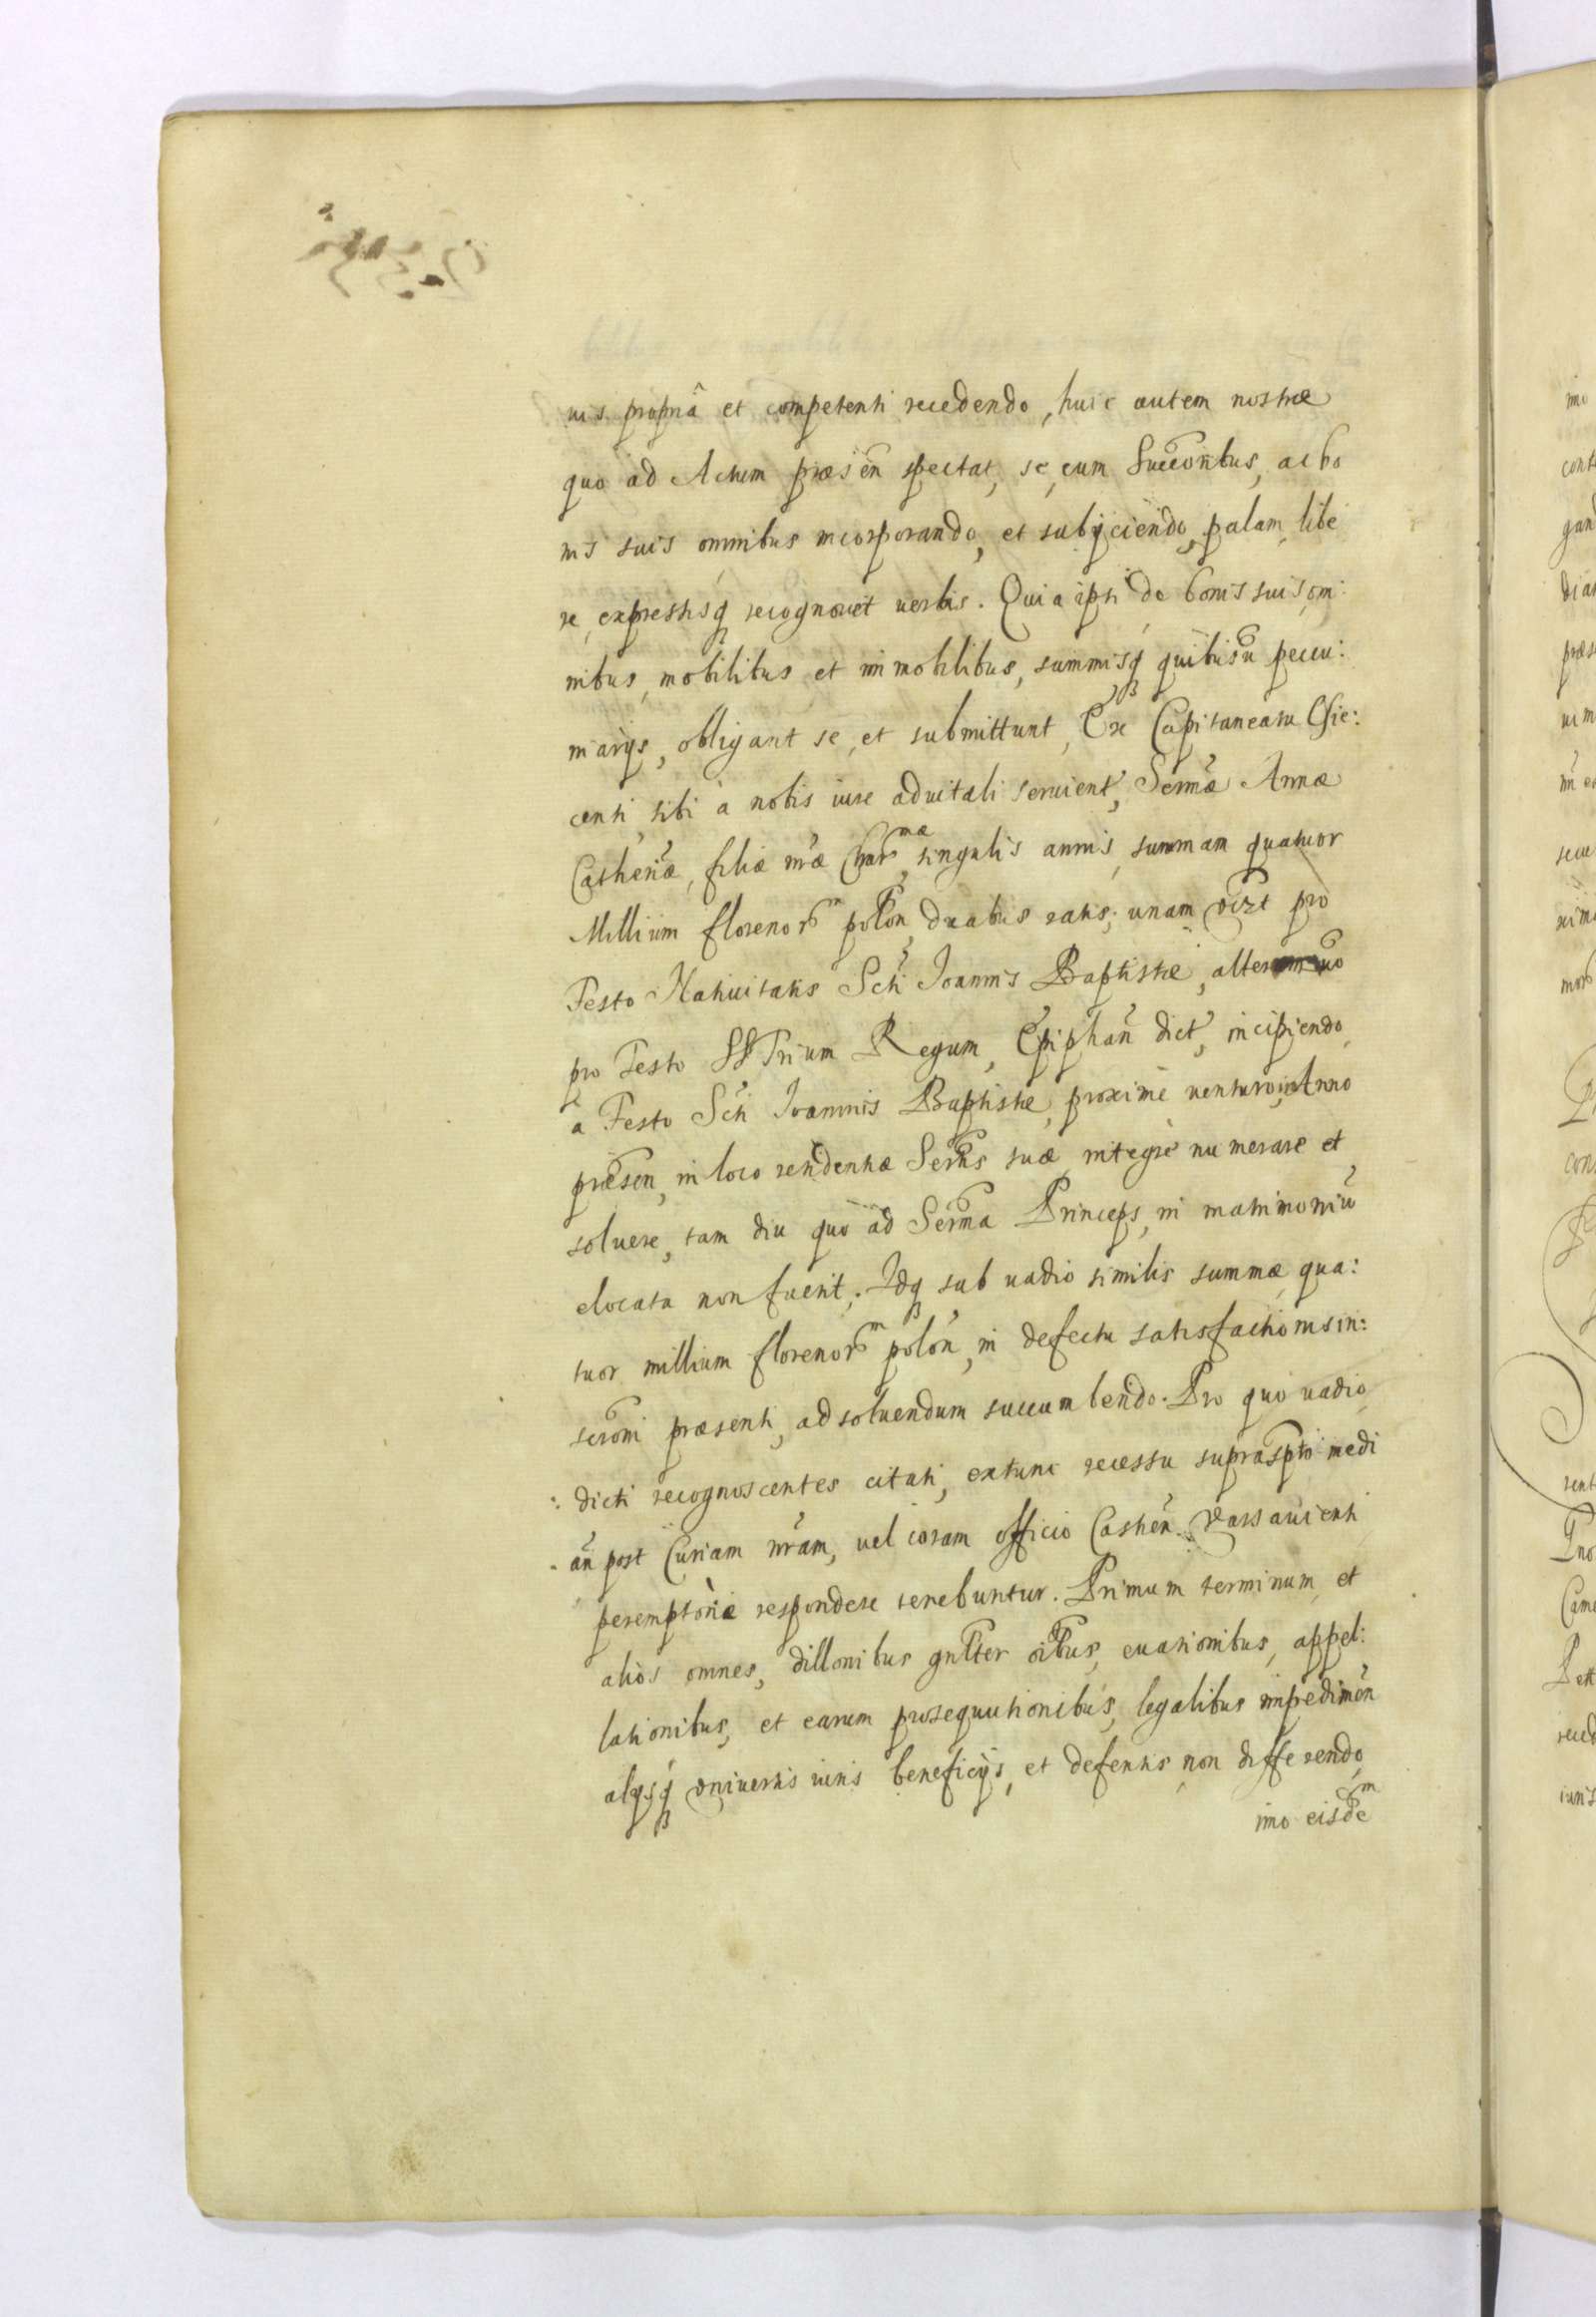 uis propriâ et competenti recedendo, huic autem nostræ
quo ad Actum præsen̄ spectat, se, cum Succōribus, ac bo
nis suis omnibus incorporando, et subijciendo, palam, libe
re, expressisq́ recognovit uerbis. Quia ipsi de bonis suis, om:
nibus, mobilibus et immobilibus, summisq́ quibusu̓ pecu:
niarijs, obligant se, et submittunt, Ex Capitaneatu
centi, sibi à nobis iure aduitali seruient̓, Sermæ Annæ
Cathen̓æ, filiæ nr̄æ Char̄mæ, singulis annis, summam quatuor
Millium florenor̄m polōn, duabus ratis; unam vizt pro
Festo Natiuitatis Scti Ioannis Baptistæ, alteram uo
pro Festo SS Trium Regum, Epiphan̄ dict̓, incipiendo
à Festo Scti Ioannis Baptistæ, proximè uenturo, in Anno
præsen, in loco residentiæ Serttis suæ, integrè numerare et
soluere, tam diu quo ad Serma Princeps, in matrimoniū
elocata non fuerit. Idq sub uadio similis summæ, qua:
tuor millium florenor̄m polōn, in defectu satisfactionis in:
scrōni præsenti, ad soluendum succumbendo. Pro quò uadio,
: dicti recognoscentes citati, extunc recessu suprasptò medi
. an̄ post Curiam nr̄am, uel coram officio Casthen̄. Varsauienti
peremptoriæ respondere tenebuntur. Primum terminum, et
aliòs omnes, dillonibus gnl̄ter oībus, euasionibus, appel:
lationibus, et earum prosequutionibus, legalibus impedimēn
alijsq́ vniuersis iuris beneficijs, et defensis, non differendo,
imo eisdem